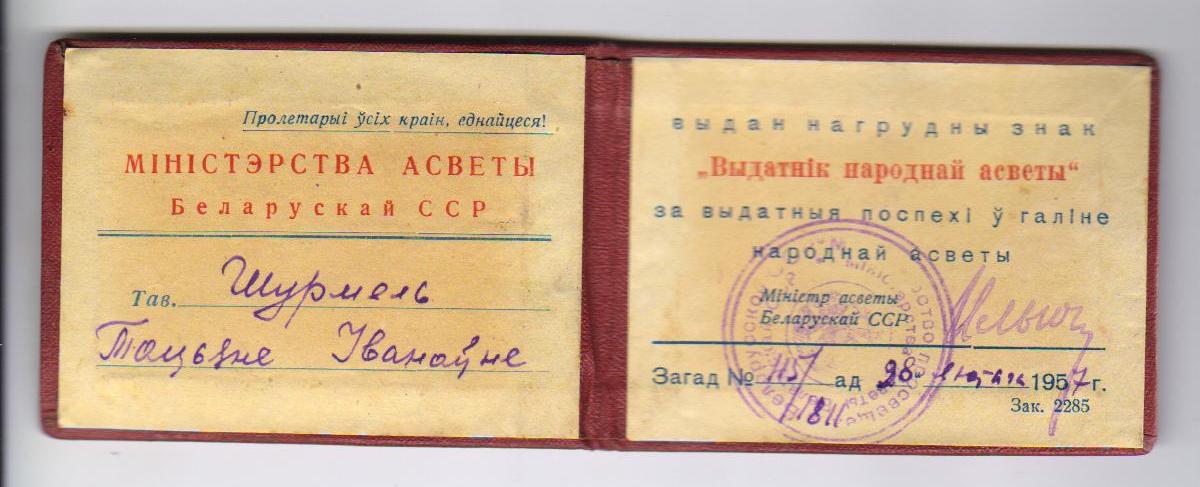 Пролетарыі ўсіх краін, еднайцеся!
МІНІСТЭРСТВА АСВЕТЫ
Беларускай ССР
Тав. Шурмель
Тацьяне Іванаўне
выдан нагрудны знак
„Выдатнік народнай асветы“
за выдатныя поспехі ў галіне
народнай асветы
Міністр асветы
Беларускай ССР
Загад № 115 ад 28 лютага 1957 г.
1811
Зак. 2285